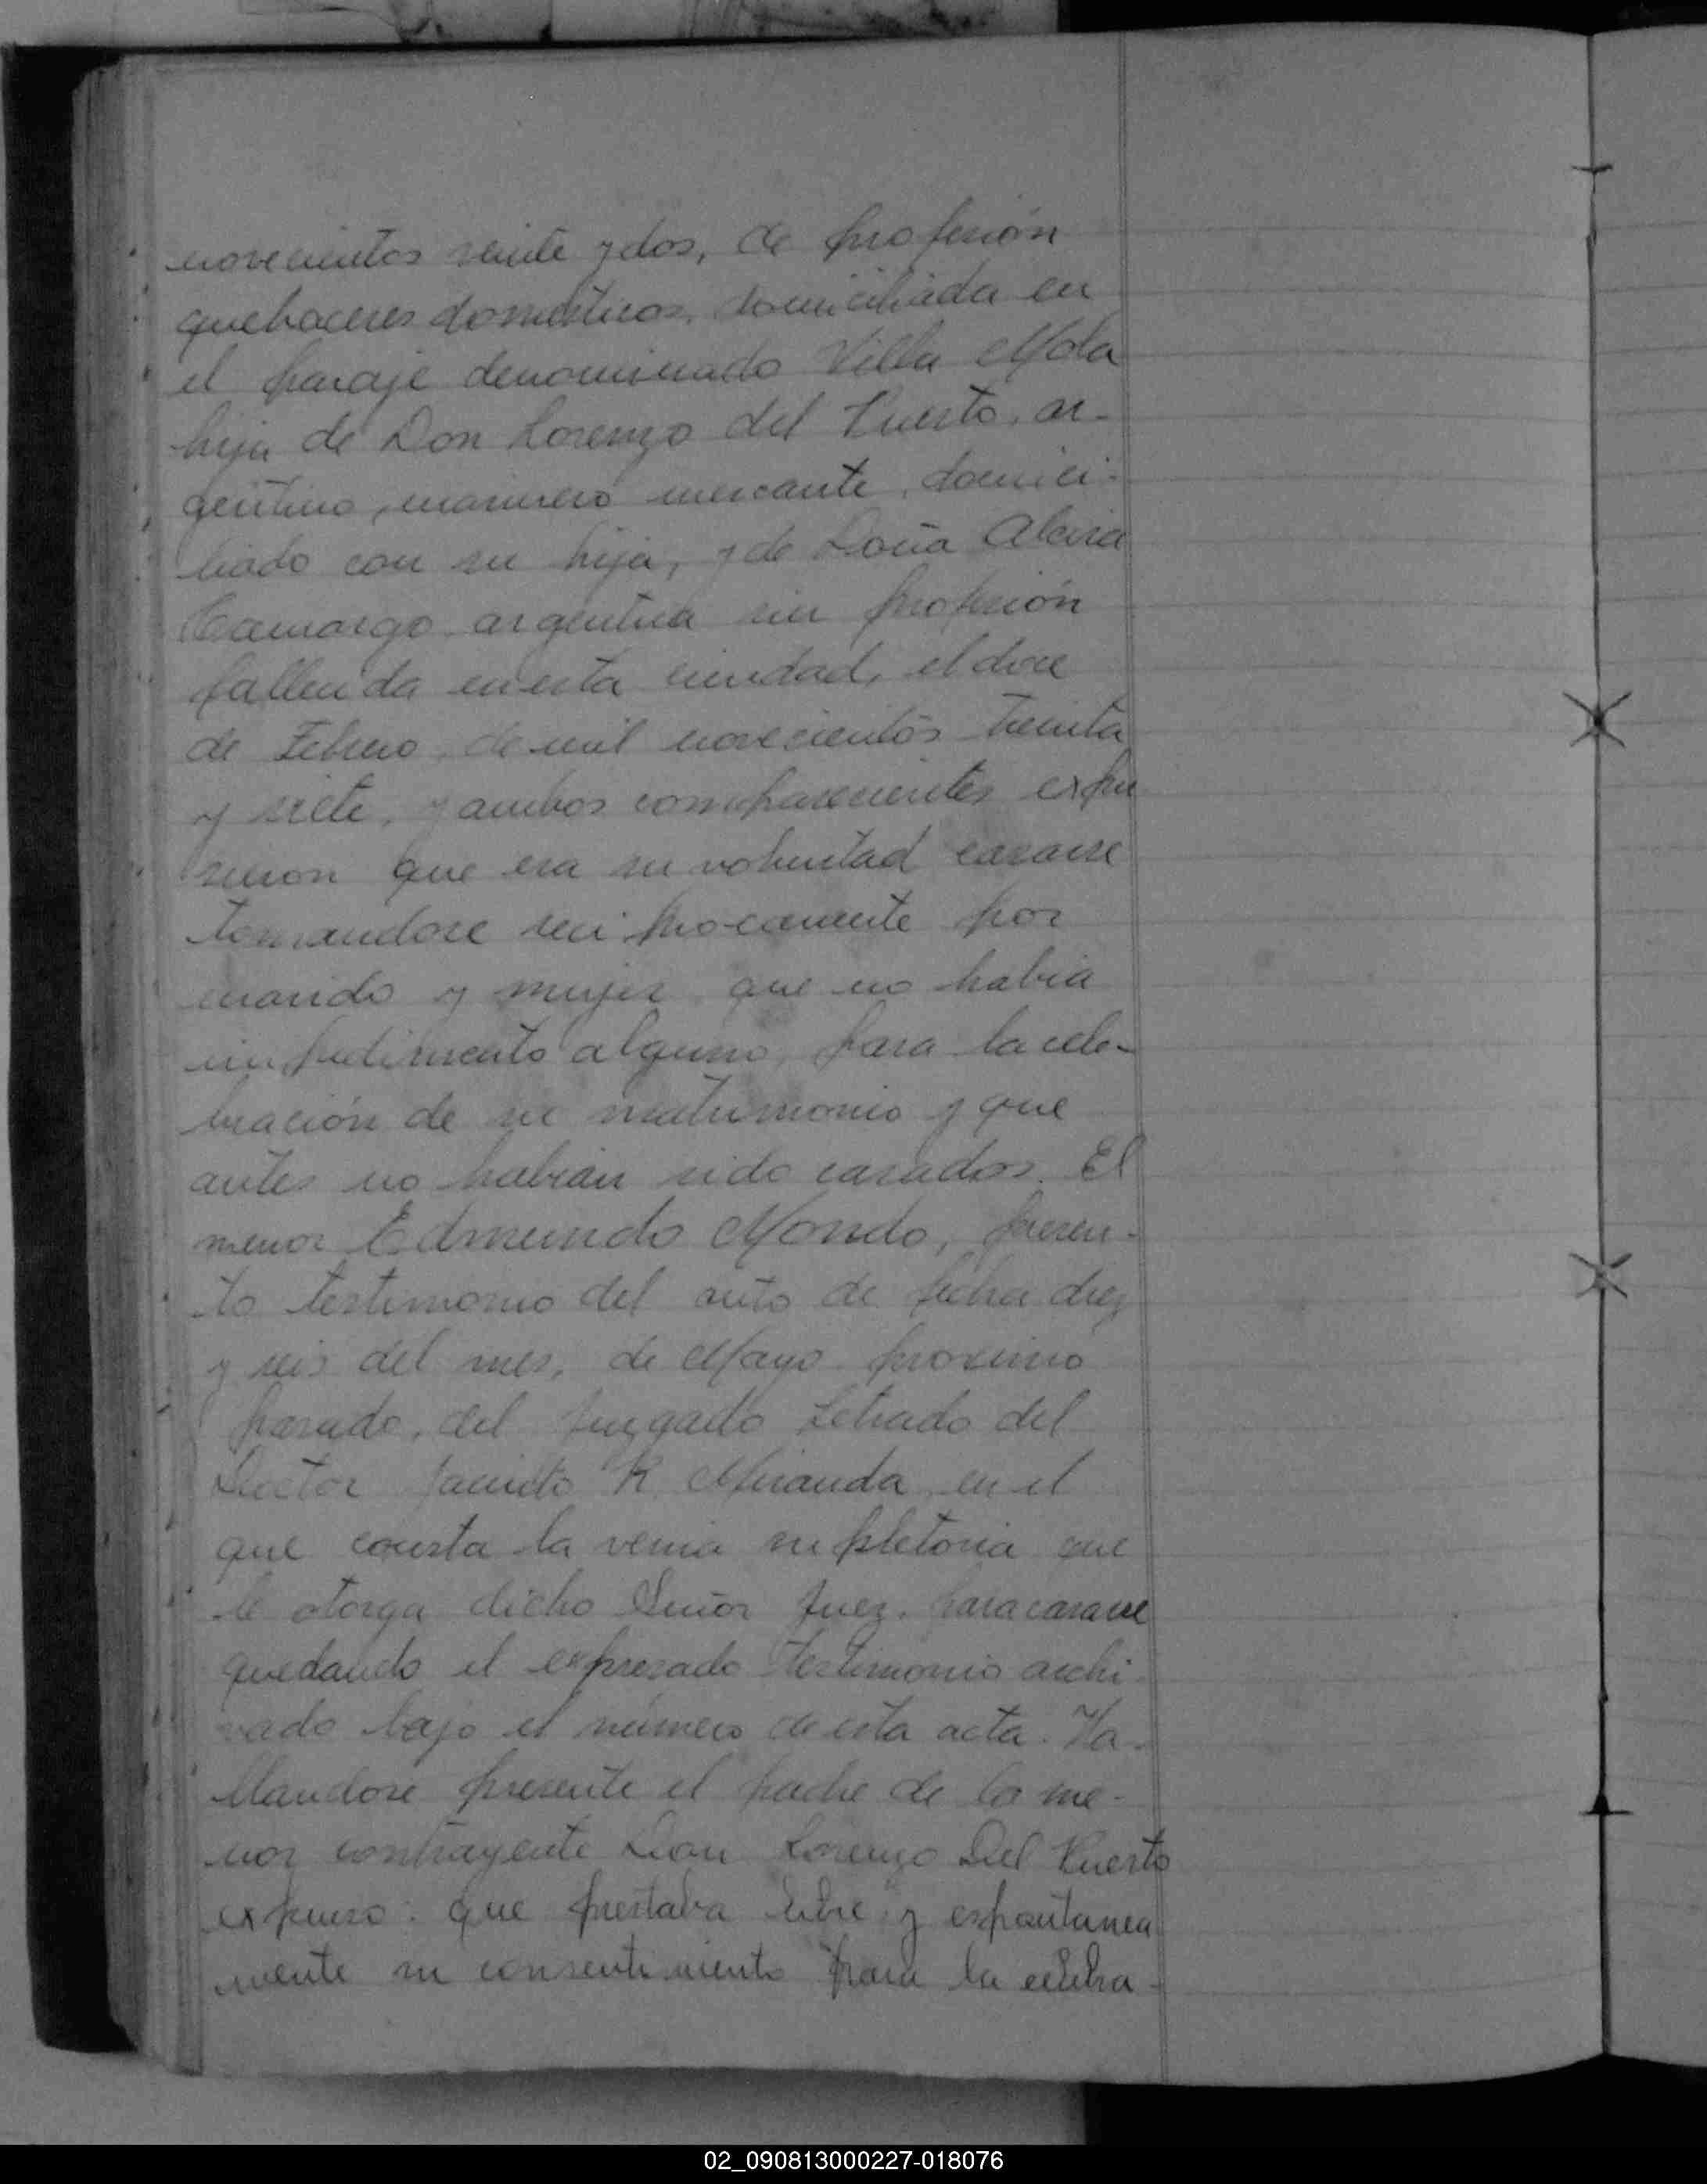 novecientos veinte y dos, de profesión
quehaceres domésticos, domiciliada en
el paraje denominado Villa Mola
hija de Don Lorenzo del Puerto, ar-
gentino, marinero mercante, domici-
liado con su hija, y de Doña Alcira
Camargo argentina sin profesión
fallecida en esta ciudad, el doce
de Febrero, de mil novecientos treinta
y siete, y ambos comparecientes expu
sieron que era su voluntad casarse
tomandose reciprocamente por
marido y mujer, que no habia
impedimento alguno, para la cele-
bración de su matrimonio y que
antes no habian sido casados. El
menor Edmundo Mondo, presen-
to testimonio del auto de fecha diez
y seis del mes, de Mayo proximo
pasado, del Juzgado Letrado del
Doctor Jacinto R. Miranda, en el
que consta la venia supletoria que
le otorga dicho Señor Juez, para casarse
quedando el expresado testimonio archi-
vado bajo el número de esta acta. Ha-
llandose presente el padre de la me-
nor contrayente Don Lorenzo Del Puerto
expuso: que prestaba libre y espontanea
mente su consentimiento para la celebra-
02_090813000227-018076